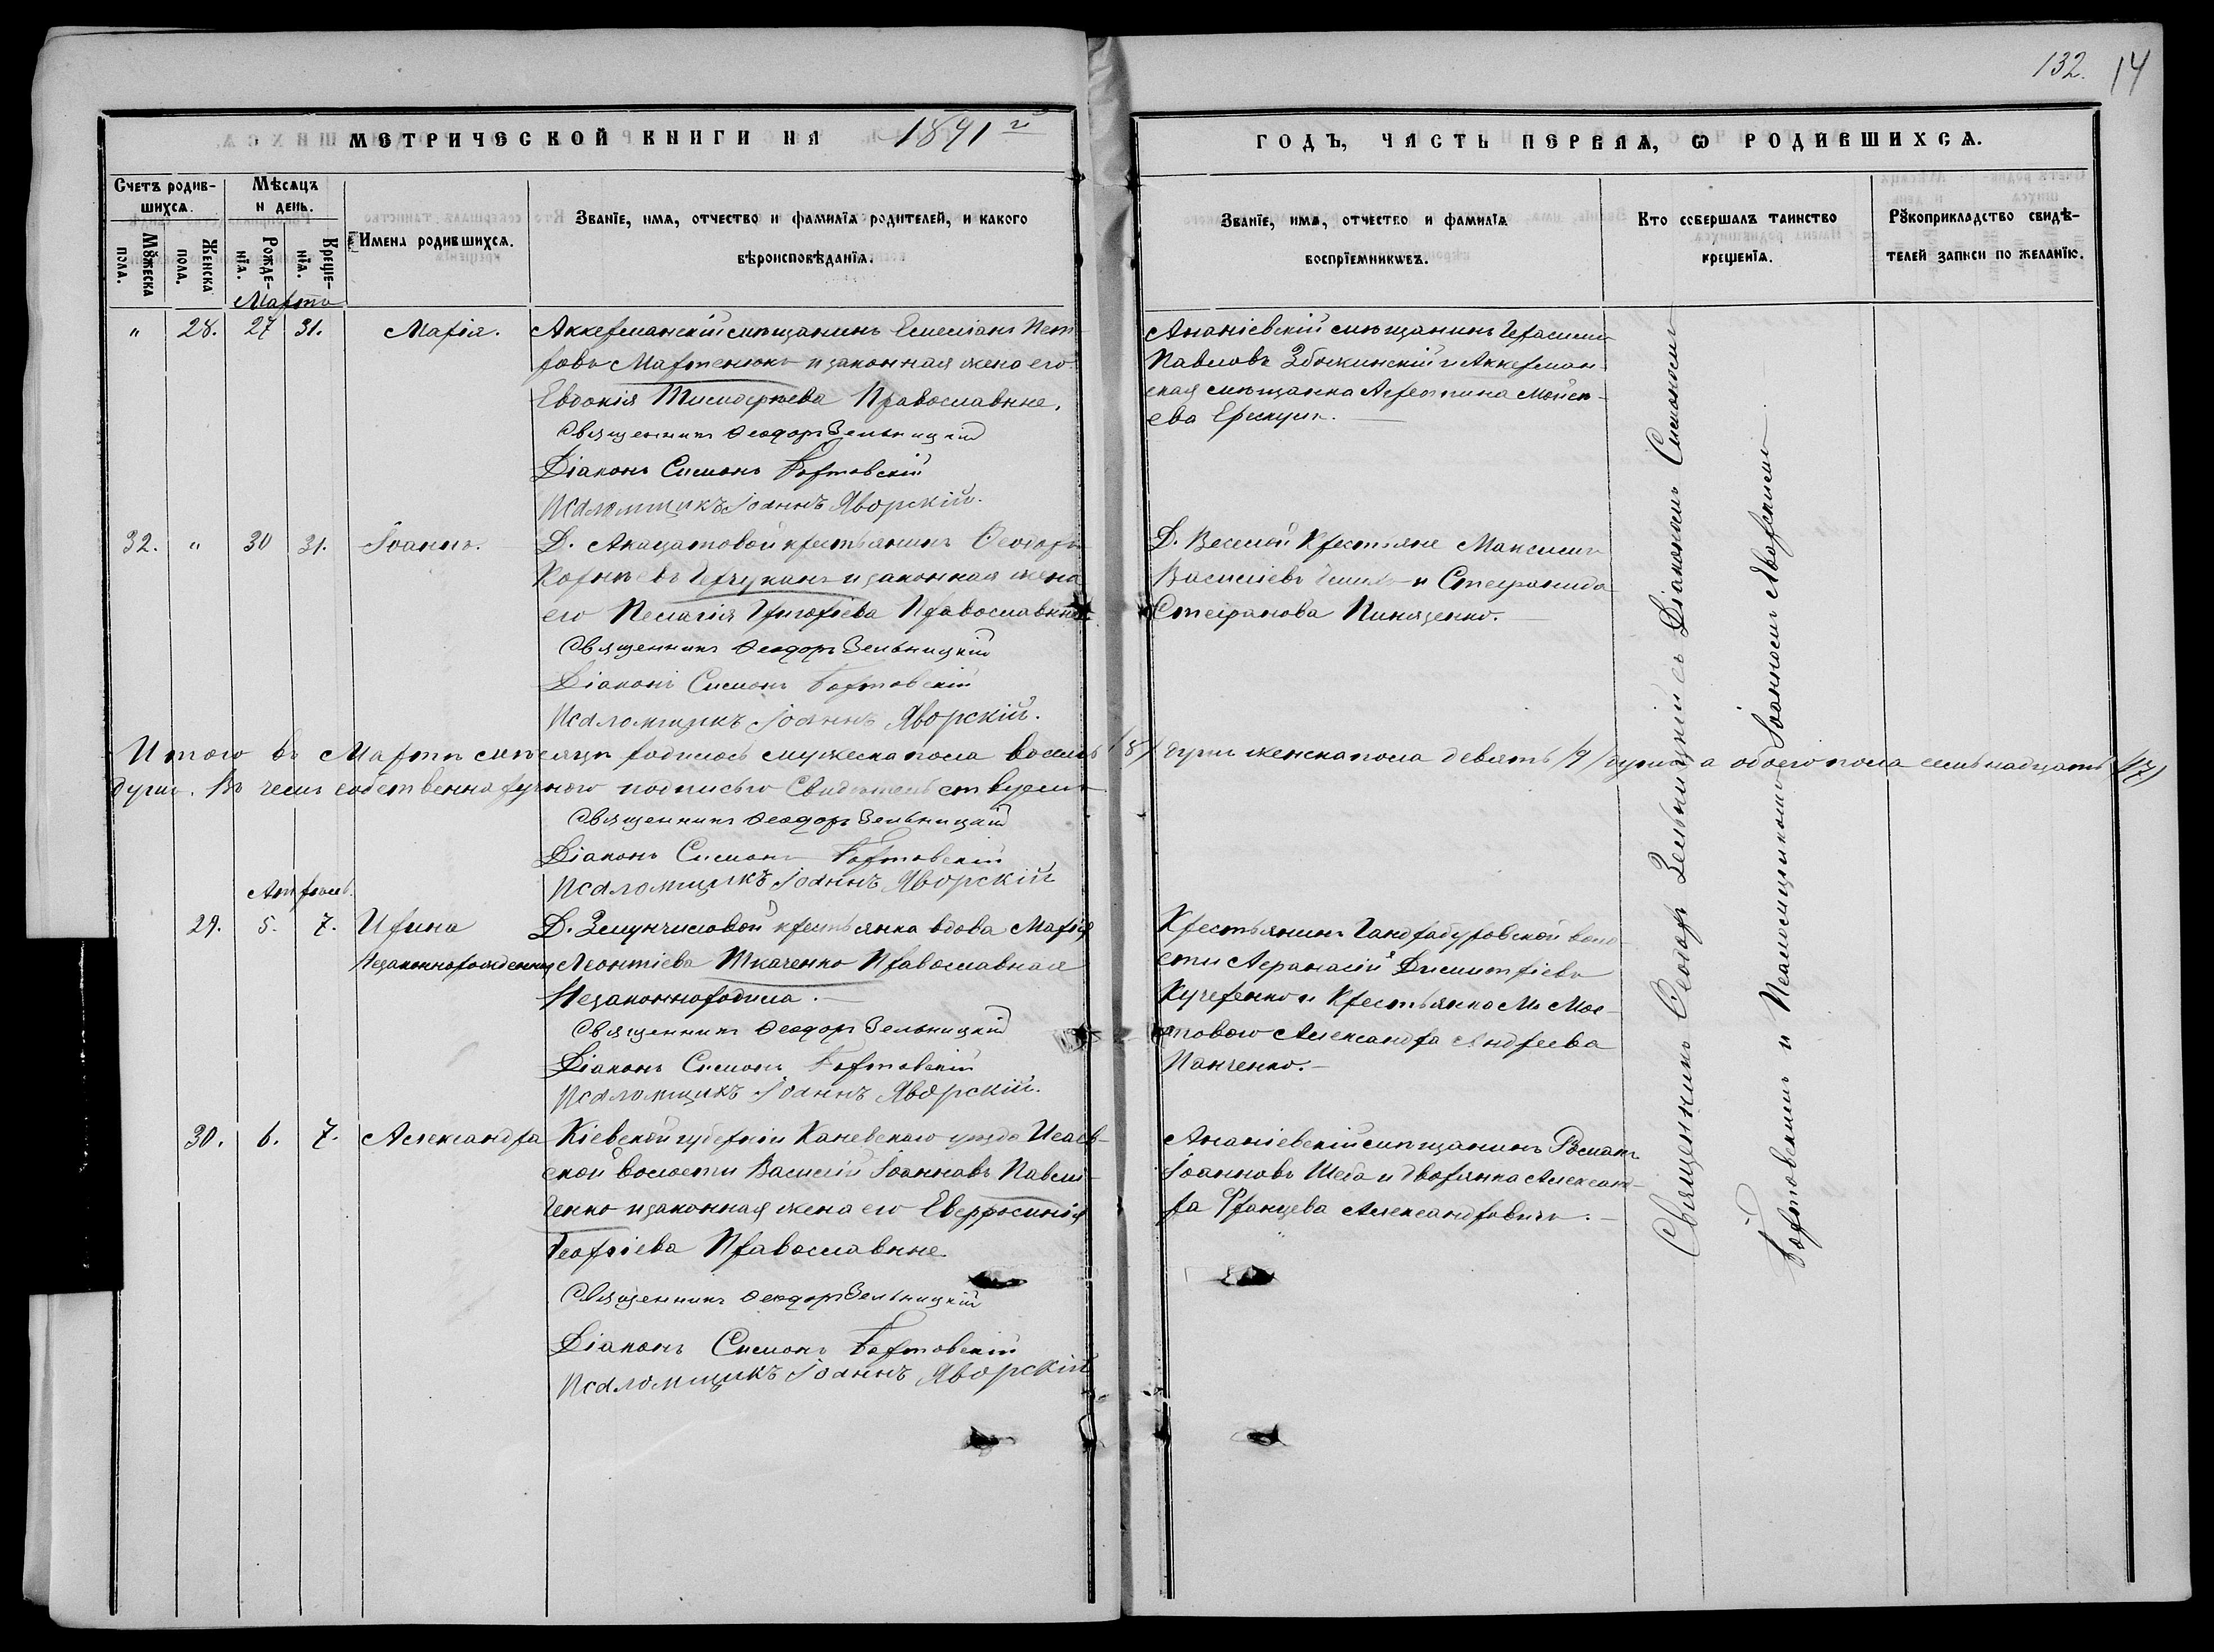 132. 14
МЕТРИЧЕСКОЙ КНИГИ НА 1891 й
ГОДЪ, ЧАСТЬ ПЕРВАЯ, Ѡ РОДИВШИХСѦ.
Счетъ родив-
шихсѧ.
Мѣсѧцъ
и день.
Мꙋжеска
пола.
Женска
пола.
Рожде-
нїѧ.
Креще-
нїѧ.
Имена родившихсѧ.
Званїе, имѧ, отчество и фамилїѧ родителей, и какого
вѣроисповѣданїѧ.
Званїе, имѧ, отчество и фамилїѧ
воспрїемникѡвъ.
Кто совершалъ таинство
крещенїѧ.
Рꙋкоприкладство свидѣ-
телей записи по желанїю.
Марта
" 28. 27 31. Марія.
Аккерманскій мѣщанинъ Емеліанъ Пет-
ровъ Мартенюкъ и законная жена его
Евдокія Тимоѳеева Православные.
Священникъ Ѳеодоръ Зельницкій
Діаконъ Симонъ Бортовскій
Псаломщикъ Іоаннъ Яворскій.
Ананіевскій мѣщанинъ Герасимъ
Павловъ Збожинскій и Аккерман-
ская мѣщанка Моисе-
ева
32. " 30 31. Іоаннъ.
Д. Акацатовой крестьянинъ Ѳеодоръ
Корнѣевъ и законная жена
его Пелагія Григоріева Православные.
Священникъ Ѳеодоръ Зельницкій
Діаконъ Симонъ Бортовскій
Псаломщикъ Іоаннъ Яворскій.
Д. Веселой Крестьяне Максимъ
Василіевъ и Стефанида
Стефанова
Итого въ Мартѣ мѣсяцѣ родилось мужеска пола восемь /8/ душъ женска пола девять /9/ душъ, а обоего пола семьнадцать /17/
душъ. Въ чемъ собственноручною подписью Свидѣтельствуемъ
Священникъ Ѳеодоръ Зельницкій
Діаконъ Симонъ Бортовскій
Псаломщикъ Іоаннъ Яворскій
Апрѣль.
29. 5. 7. Ирина
Незаконнорожденная
Д. крестьянка вдова Марія
Леонтіева Ткаченко Православная
Незаконнородила.
Священникъ Ѳеодоръ Зельницкій
Діаконъ Симонъ Бортовскій
Псаломщикъ Іоаннъ Яворскій.
Крестьянинъ Гандрабуровской воло-
сти Аѳанасій Димитріевъ
Кучеренко и Крестьянка М. Мос-
товаго Александра Андреева
Панченко.
30. 6. 7. Александра
Кіевской губерніи Каневскаго уѣзда
ской волости Василій Іоанновъ Павли-
ченко и законная жена его Евфросинія
Георгіева Православные.
Священникъ Ѳеодоръ Зельницкій
Діаконъ Симонъ Бортовскій
Псаломщикъ Іоаннъ Яворскій
Ананіевскій мѣщанинъ Романъ
Іоанновъ Шеба и дворянка Александ-
ра Францева Александровичъ.
Священникъ Ѳеодоръ Зельницкій съ Діакономъ Симономъ
Бортовскимъ и Псаломщикомъ Іоанномъ Яворскимъ